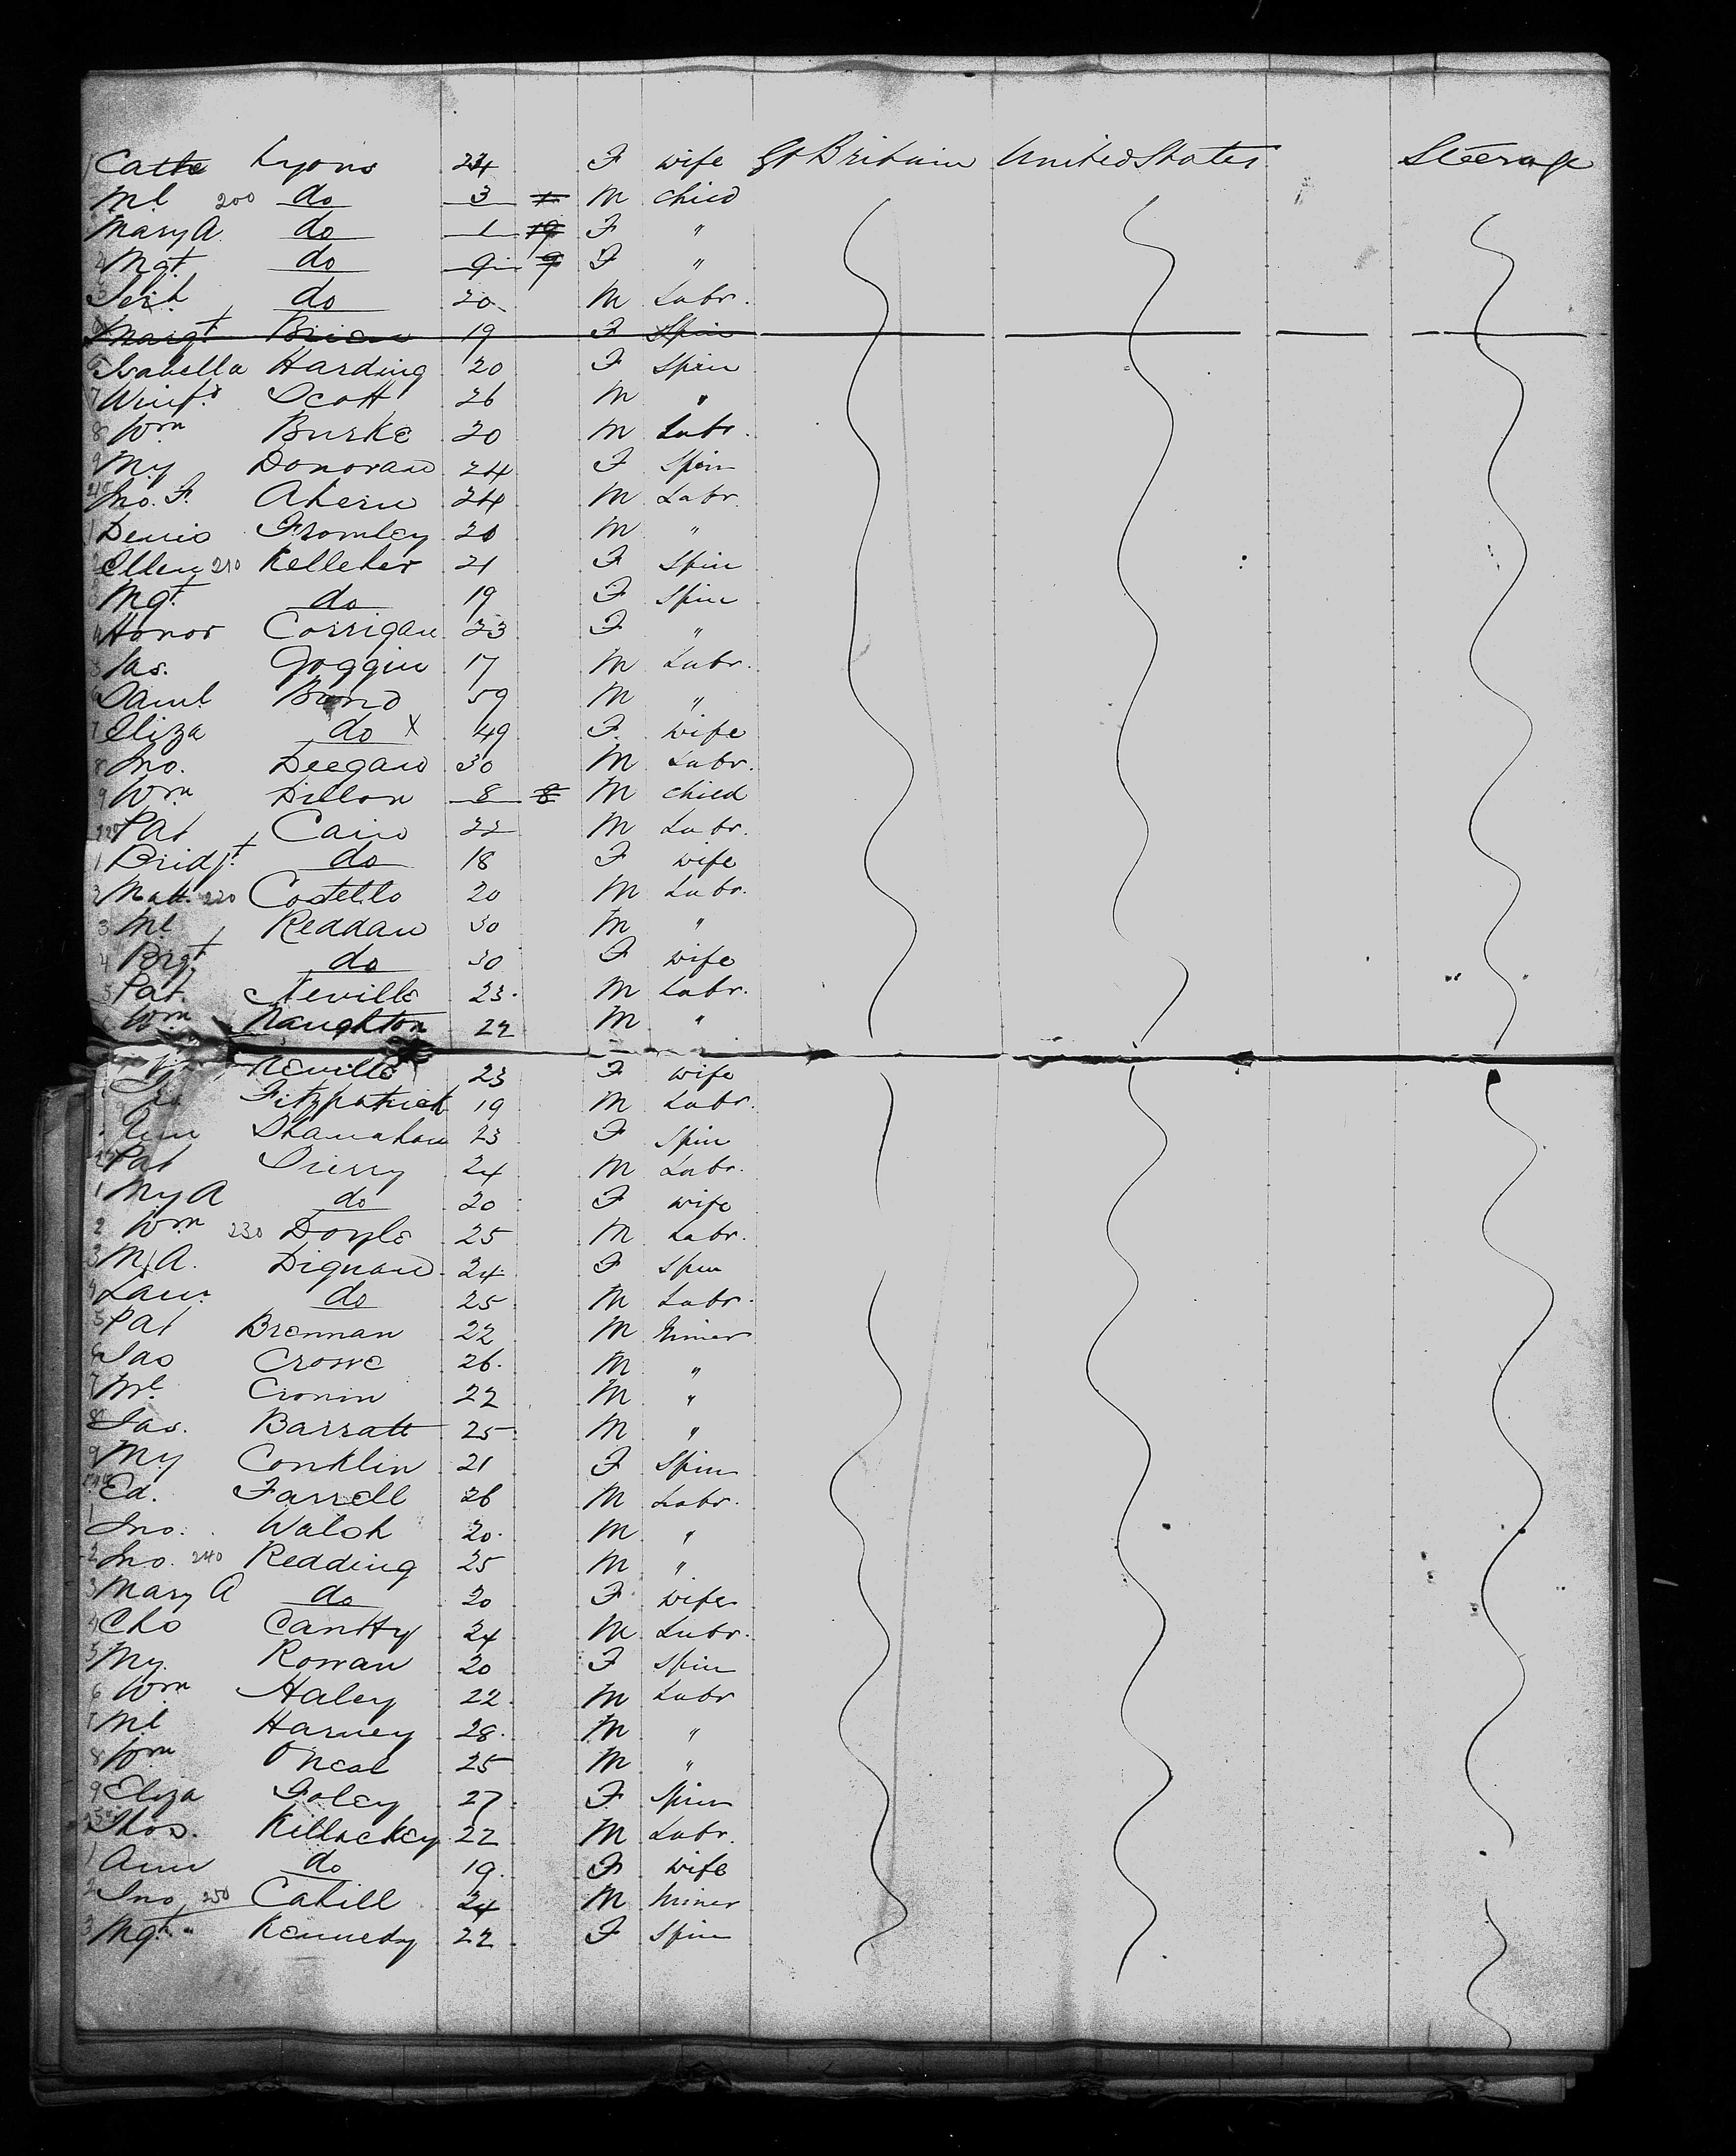 1 Cathe Lyons 24 F wife Gt Britain United States Steerage
Ml 200 do 3 M child
Mary A do 1 F "
Mgt do 9 F "
do 20 M Labr.
Margt Brien 19 F Spin
6 Isabella Harding 20 F Spin
7 Winifd Scott 26 M "
8 Wm Burke 20 M Labr.
9 My Donovan 24 F Spin
210 Jno. F. Ahern 24 M Labr.
1 Denis Fromley 20 M "
2 Ellen 210 Kelleher 21 F Spin
3 Mgt do 19 F Spin
4 Honor Corrigan 23 F "
5 Jas. Goggin 17 M Labr.
6 Daml Bond 59 M "
7 Eliza do X 49 F wife
8 Jno. Deegan 30 M Labr.
9 Wm Dillon 8 8 M child
220 Pat Cain 22 M Labr.
1 Bridgt do 18 F wife
2 Matt. 220 Costello 20 M Labr.
3 Ml Reddan 30 M "
4 Brgt do 30 F wife
5 Pat. Neville 23 M Labr.
6 Wm Naughton 22 M "
Neville 23 F wife
Fitzpatrick 19 M Labr.
Ann Shanahan 23 F Spin
230 Pat Dierry 24 M Labr.
1 My A do 20 F wife
2 Wm 230 Doyle 25 M Labr.
3 M A. Dignan 24 F Spin
4 Laur. do 25 M Labr.
5 Pat Brennan 22 M Miner
6 Jas Crowe 26 M "
7 Ml Cronin 22 M "
8 Jas. Barratt 25 M "
9 My Conklin 21 F Spin
240 Ed. Farrell 26 M Labr.
1 Jno. Walsh 20 M "
2 Jno. 240 Redding 25 M "
3 Mary A do 20 F wife
4 Chs Cantty 24 M Labr.
5 My. Rowan 20 F Spin
6 Wm Haley 22 M Labr
7 Ml Harvey 28 M "
8 Wm ONeal 25 M "
9 Eliza Foley 27 F Spin
250 Thos. Killackey 22 M Labr.
1 Ann do 19 F wife
2 Jno 250 Cahill 24 M Miner
3 Mgt Kennedy 22 F Spin